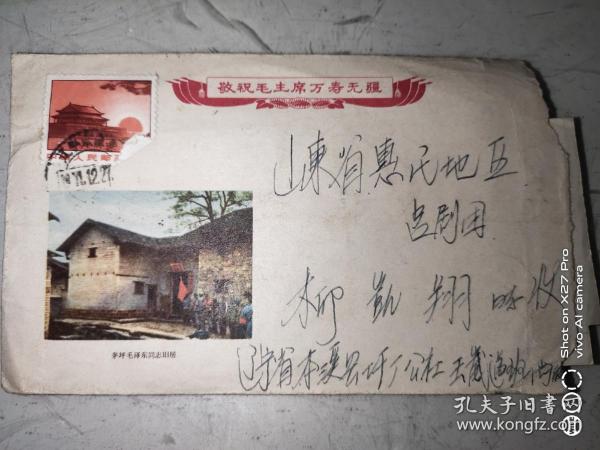 敬祝毛主席万寿无疆
中国人民邮政
71.12.27.
山東省惠民地区
吕剧团
柳凱翔 收
茅坪毛泽东同志旧居
辽宁省本溪县
Shot on X27 Pro
vivo AI camera
孔夫子旧书网
www.kongfz.com